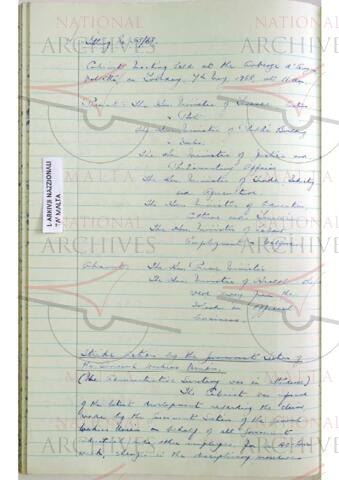 Cabinet Meeting held at the Auberge d'Aragon
Valletta, on Tuesday, 7th May 1968, at
Present: The Hon. Minister of Finance, Customs
& Port
The Hon. Minister of Public Building
& Works
The Hon. Minister of Justice and
Parliamentary Affairs
The Hon. Minister of Trade, Industry
and Agriculture.
The Hon. Minister of Education
Culture and Tourism
The Hon. Minister of Labour
Employment & Welfare
Absent: The Hon. Prime Minister
The Hon. Minister of Health
were away from the
Island on official
business.
Strike action by the Section of
the General Workers Union.
(The Administrative Secretary was in attendance)
The Cabinet was informed
of the latest development regarding the claim
made by the Government Section of the General
Workers Union on behalf of all Government
industrial and other employees for a 40-hour
week, change in the disciplinary
L-ARKIVJI NAZZJONALI
TA' MALTA
NATIONAL
ARCHIVES
MALTA
NATIONAL
ARCHIVES